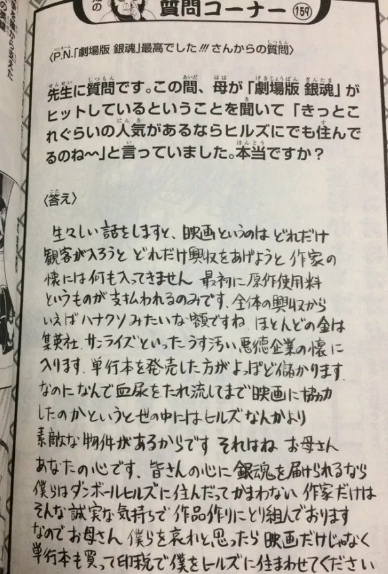 質問コーナー 159
〈P.N.「劇場版 銀魂」最高でした!!!さんからの質問〉
先生に質問です。この間、母が「劇場版 銀魂」が
ヒットしているということを聞いて「きっとこ
れぐらいの人気があるならヒルズにでも住んで
るのね〜」と言っていました。本当ですか？
〈答え〉
生々しい話をしますと、映画というのは どれだけ
観客が入ろうと どれだけ興収をあげようと 作家の
懐には何も入ってきません 最初に原作使用料
というものが支払われるのみです。全体の興収から
いえばハナクソみたいな額ですね ほとんどの金は
集英社、サンライズといったうす汚い悪徳企業の懐に
入ります。単行本を発売した方がよっぽど儲かります
なのになんで血尿をたれ流してまで映画に協力
したのかというと世の中にはヒルズなんかより
素敵な物件があるからです それはね お母さん
あなたの心です、皆さんの心に銀魂を届けられるなら
僕らはダンボールヒルズに住んだってかまわない 作家だけは
そんな誠実な気持ちで作品作りにとり組んでおります
なのでお母さん 僕らを哀れと思ったら 映画だけじゃなく
単行本も買って印税で僕をヒルズに住まわせてください